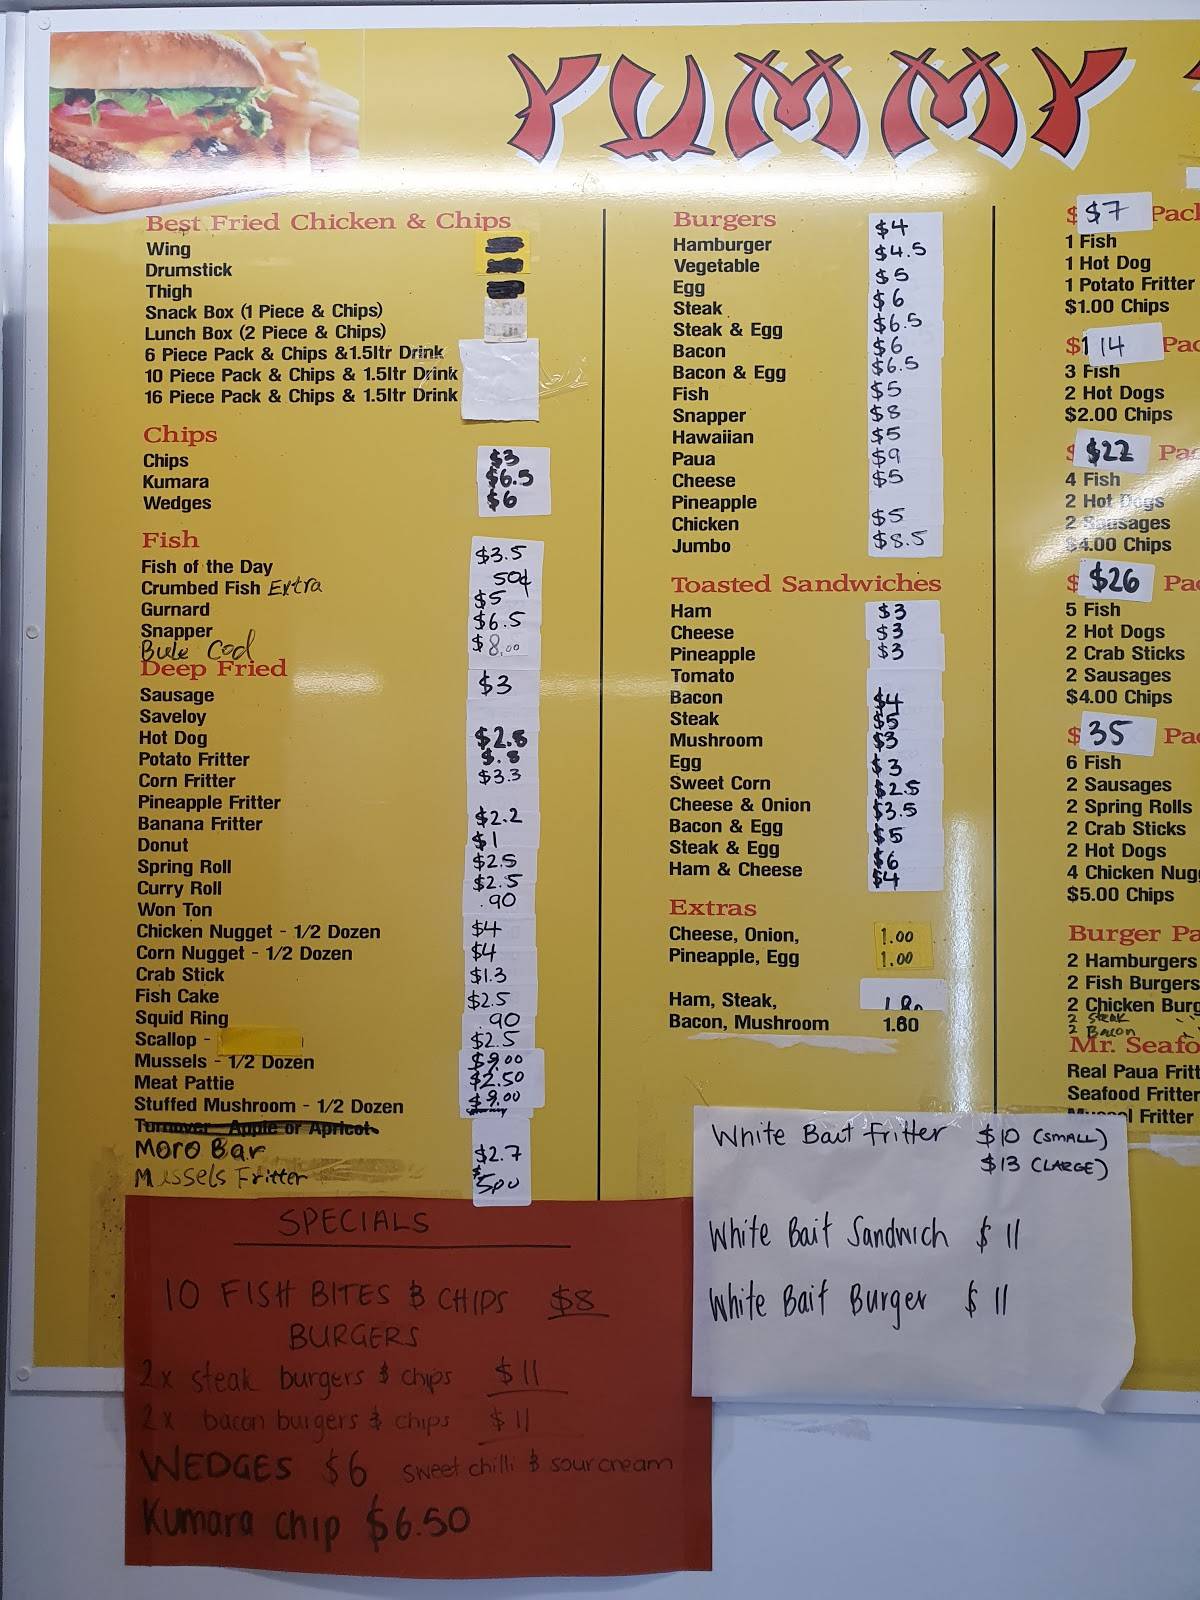 YUMMY
Best Fried Chicken & Chips
Wing
Drumstick
Thigh
Snack Box (1 Piece & Chips)
Lunch Box (2 Piece & Chips)
6 Piece Pack & Chips &1.5ltr Drink
10 Piece Pack & Chips & 1.5ltr Drink
16 Piece Pack & Chips & 1.5ltr Drink
Chips
Chips $3
Kumara $6.5
Wedges $6
Fish
Fish of the Day $3.5
Crumbed Fish Extra 50¢
Gurnard $5
Snapper $6.5
Blue Cod $8.00
Deep Fried
Sausage $3
Saveloy
Hot Dog $2.8
Potato Fritter $.8
Corn Fritter $3.3
Pineapple Fritter
Banana Fritter $2.2
Donut $1
Spring Roll $2.5
Curry Roll $2.5
Won Ton .90
Chicken Nugget - 1/2 Dozen $4
Corn Nugget - 1/2 Dozen $4
Crab Stick $1.3
Fish Cake $2.5
Squid Ring .90
Scallop - $2.5
Mussels - 1/2 Dozen $9.00
Meat Pattie $2.50
Stuffed Mushroom - 1/2 Dozen $9.00
Turnover Apple or Apricot
Moro Bar $2.7
Mussels Fritter
SPECIALS
10 FISH BITES & CHIPS $8
BURGERS
2x steak burgers & chips $11
2x bacon burgers & chips $11
WEDGES $6 sweet chilli & sour cream
Kumara chip $6.50
Burgers
Hamburger $4
Vegetable $4.5
Egg $5
Steak $6
Steak & Egg $6.5
Bacon $6
Bacon & Egg $6.5
Fish $5
Snapper $8
Hawaiian $5
Paua $9
Cheese $5
Pineapple
Chicken $5
Jumbo $8.5
Toasted Sandwiches
Ham $3
Cheese $3
Pineapple $3
Tomato
Bacon $4
Steak $5
Mushroom $3
Egg $3
Sweet Corn $2.5
Cheese & Onion $3.5
Bacon & Egg $5
Steak & Egg $6
Ham & Cheese $4
Extras
Cheese, Onion, 1.00
Pineapple, Egg 1.00
Ham, Steak,
Bacon, Mushroom 1.80
White Bait Fritter $10 (SMALL)
$13 (LARGE)
White Bait Sandwich $11
White Bait Burger $11
$ $7 Pac
1 Fish
1 Hot Dog
1 Potato Fritter
$1.00 Chips
$1 14 Pac
3 Fish
2 Hot Dogs
$2.00 Chips
$ $22 Pac
4 Fish
2 Hot Dogs
2 Sausages
$4.00 Chips
$ $26 Pa
5 Fish
2 Hot Dogs
2 Crab Sticks
2 Sausages
$4.00 Chips
$ 35 Pa
6 Fish
2 Sausages
2 Spring Rolls
2 Crab Sticks
2 Hot Dogs
4 Chicken Nug
$5.00 Chips
Burger Pa
2 Hamburgers
2 Fish Burgers
2 Chicken Burg
2 Steak
2 Bacon
Mr. Seafo
Real Paua Fritt
Seafood Fritter
Mussel Fritter